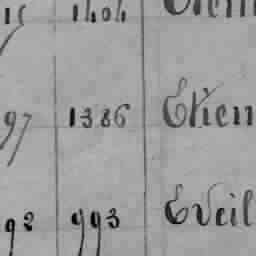 15 1404 Etien
97 1386 Etien
92 993 Eveil